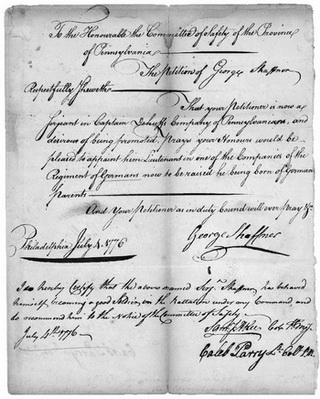 To the Honourable the Committee of Safety of the Province
of Pennsylvania
The Petition of George Shaffner
Respectfully Sheweth
That your Petitioner is now a
serjeant in Captain Company of Pennsylvanians, and
desirous of being promoted, Prays your Honours would be
pleased to appoint him Lieutenant in one of the Companies of the
Regiment of Germans now to be raised he being born of German
Parents
And Your Petitioner as in duty bound will ever Pray &c
Philadelphia July 4 1776
George Shaffner
I do hereby Certify that the above named Serj.t Shaffner has behaved
himself becoming a good Soldier, in the Battalion under my Command, and
do recommend him to the Notice of the Committee of Safety
July 4th 1776
Sam.l J. Atlee Col.
Caleb Parry Lt. Coll.